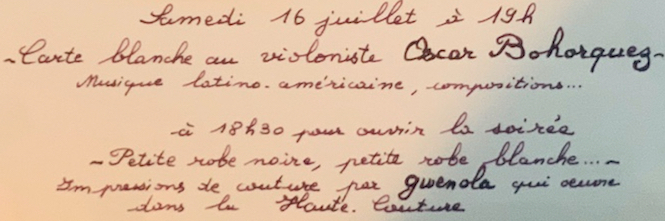 Samedi 16 juillet à 19h
~Carte blanche au violoniste Oscar Bohorquez~
Musique latino-américaine, compositions...
à 18h30 pour ouvrir la soirée
~Petite robe noire, petite robe blanche...~
Impressions de couture par gwenola qui œuvre
dans la Haute-Couture